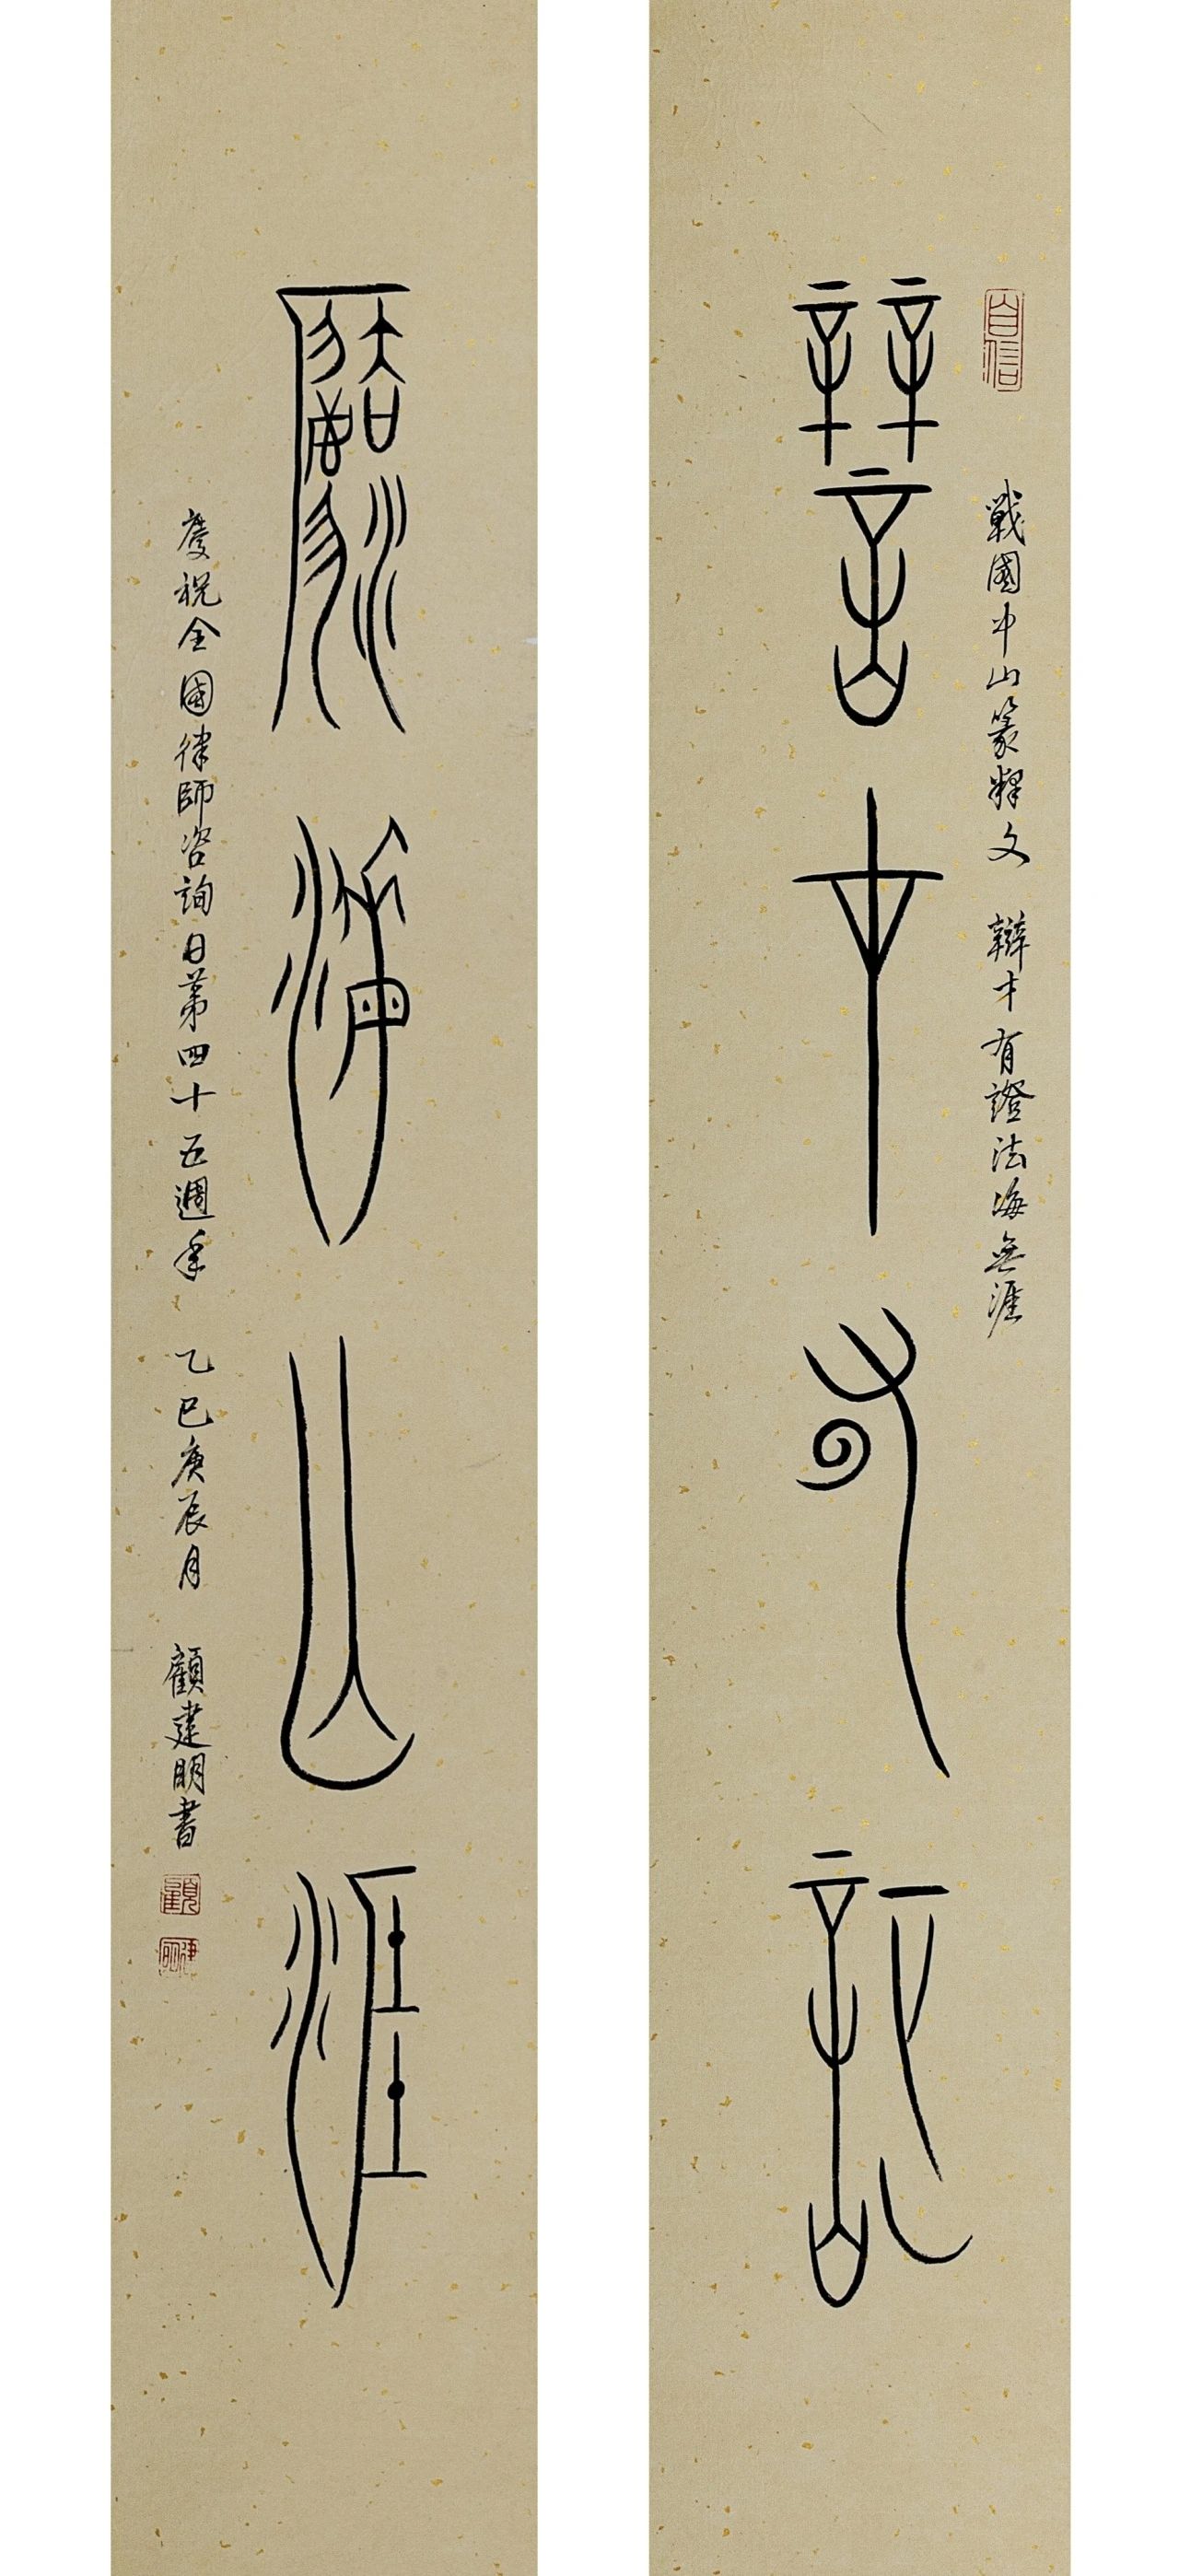 自信
戰國中山篆釋文 辯才有證法海無涯
辯才有證
灋海無涯
慶祝全國律師咨詢日第四十五週年 乙巳庚辰月 顧建明書
顧
建明